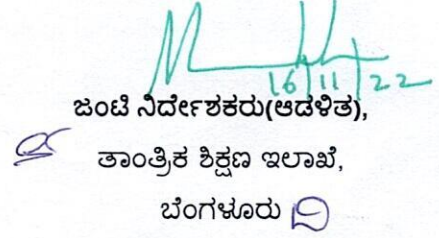 16/11/22
ಜಂಟಿ ನಿರ್ದೇಶಕರು(ಆಡಳಿತ),
ತಾಂತ್ರಿಕ ಶಿಕ್ಷಣ ಇಲಾಖೆ,
ಬೆಂಗಳೂರು